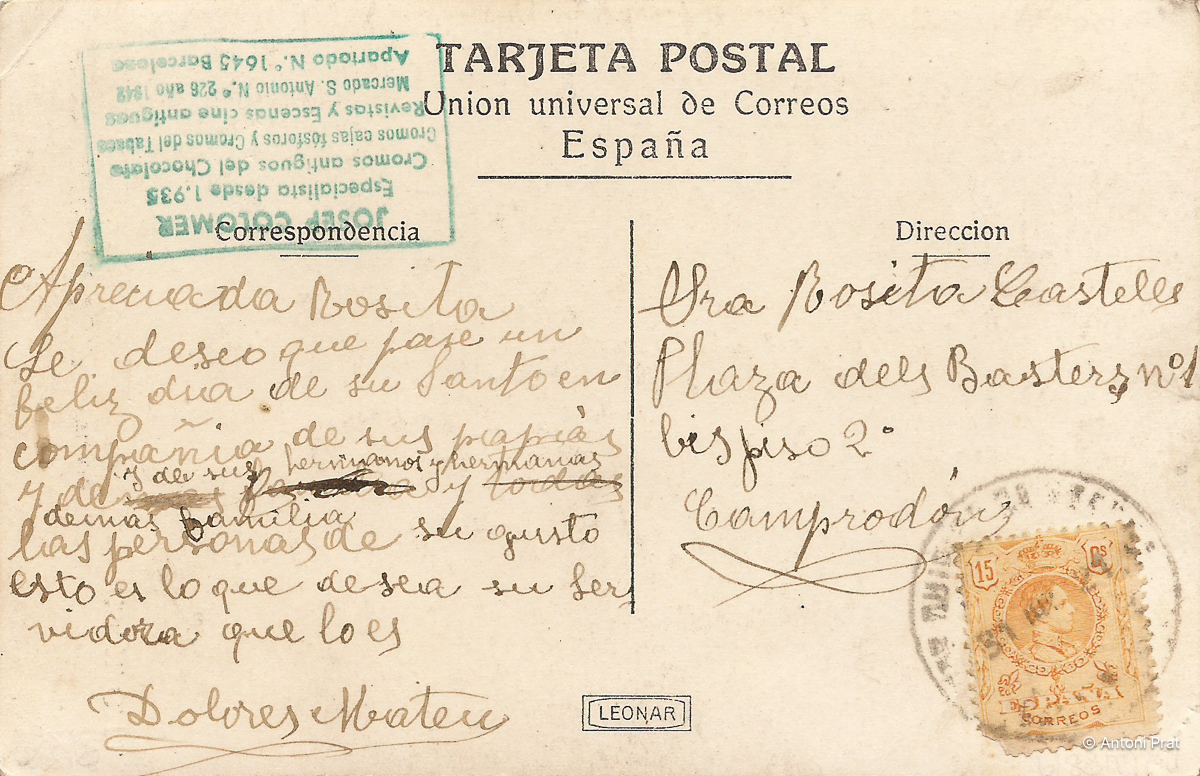 TARJETA POSTAL
Union universal de Correos
España
JOSEP COLOMER
Especialista desde 1.935
Cromos antiguos del Chocolate
Cromos cajas fósforos y Cromos del Tabaco
Revistas y Escenas cine antiguas
Mercado S. Antonio N.º 226 año 1942
Apartado N.º 1645 Barcelona
Correspondencia
Apreciada Rosita
Le deseo que pase un
feliz dia de su Santo en
compañia de sus papás
y de sus hermanos y hermanas
y de y todas
demas familia
las personas de su gusto
esto es lo que desea su ser
vidora que lo es
Dolores Mateu
Direccion
Sra Rosita Castells
Plaza dels Basters, nº 1
bis piso 2º
Camprodón
15 Cs
CORREOS
LEONAR
© Antoni Prat